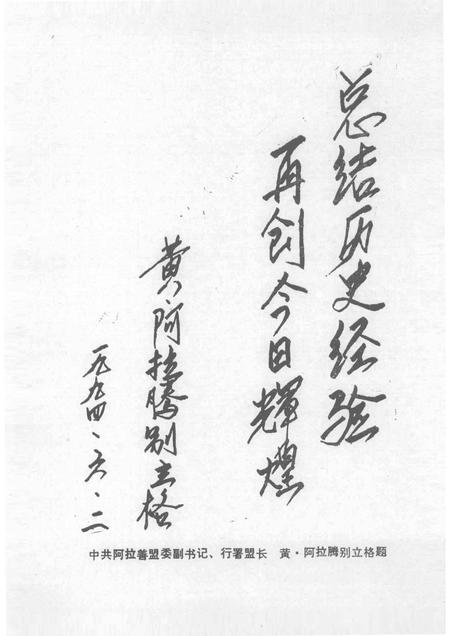 总结历史经验
再创今日辉煌
黄·阿拉腾别立格
一九九四、六、二
中共阿拉善盟委副书记、行署盟长 黄·阿拉腾别立格题